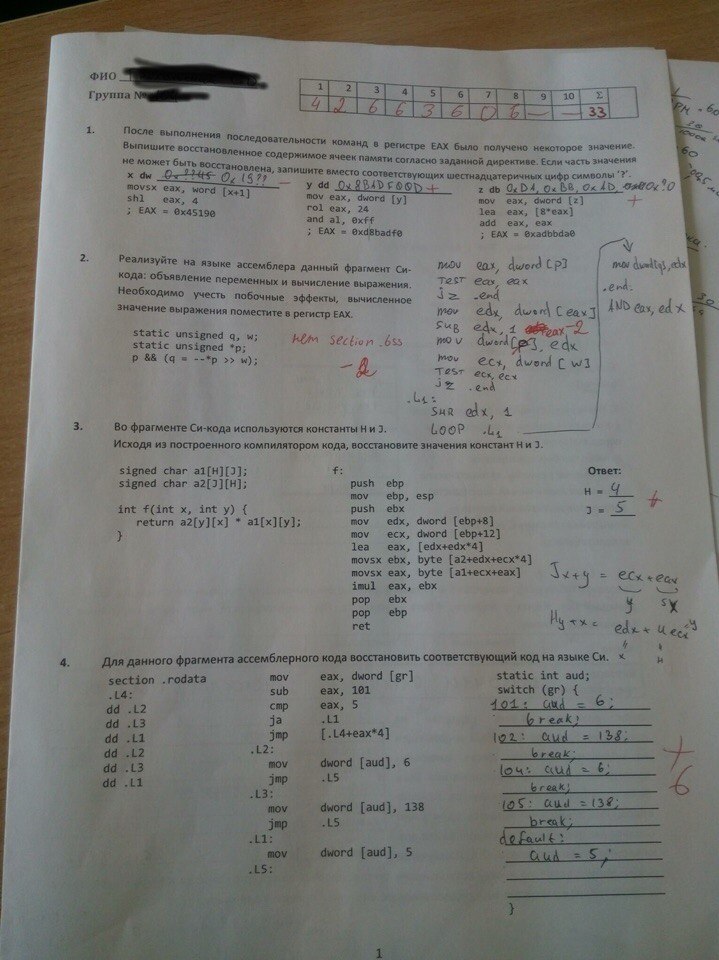 ФИО
Группа №
1 2 3 4 5 6 7 8 9 10 Σ
4 2 6 6 3 6 0 6 — — 33
1. После выполнения последовательности команд в регистре EAX было получено некоторое значение.
Выпишите восстановленное содержимое ячеек памяти согласно заданной директиве. Если часть значения
не может быть восстановлена, запишите вместо соответствующих шестнадцатеричных цифр символы '?'.
x dw 0x??45 0x19?? —
movsx eax, word [x+1]
shl eax, 4
; EAX = 0x45190
y dd 0x8BADF00D +
mov eax, dword [y]
rol eax, 24
and al, 0xff
; EAX = 0xd8badf0
z db 0xDA, 0xBB, 0xAD, 0x?0
mov eax, dword [z]
lea eax, [8*eax]
add eax, eax
; EAX = 0xadbbda0
+
2. Реализуйте на языке ассемблера данный фрагмент Си-
кода: объявление переменных и вычисление выражения.
Необходимо учесть побочные эффекты, вычисленное
значение выражения поместите в регистр EAX.
static unsigned q, w;
static unsigned *p;
p && (q = --*p >> w);
нет section .bss
-2
mov eax, dword [p]
TEST eax, eax
jz .end
mov edx, dword [eax]
SUB edx, 1
eax -2
mov dword [p], edx
mov ecx, dword [w]
TEST ecx, ecx
jz .end
.L1:
SHR edx, 1
LOOP .L1
mov dword [q], edx
.end:
AND eax, edx
3. Во фрагменте Си-кода используются константы H и J.
Исходя из построенного компилятором кода, восстановите значения констант H и J.
signed char a1[H][J];
signed char a2[J][H];
int f(int x, int y) {
return a2[y][x] * a1[x][y];
}
f:
push ebp
mov ebp, esp
push ebx
mov edx, dword [ebp+8]
mov ecx, dword [ebp+12]
lea eax, [edx+edx*4]
movsx ebx, byte [a2+edx+ecx*4]
movsx eax, byte [a1+ecx+eax]
imul eax, ebx
pop ebx
pop ebp
ret
Ответ:
H = 4
J = 5
+
Jx+y = ecx+eax
y 5x
Hy+x = edx + 4 ecx
x H y
4. Для данного фрагмента ассемблерного кода восстановить соответствующий код на языке Си.
section .rodata
.L4:
dd .L2
dd .L3
dd .L1
dd .L2
dd .L3
dd .L1
mov eax, dword [gr]
sub eax, 101
cmp eax, 5
ja .L1
jmp [.L4+eax*4]
.L2:
mov dword [aud], 6
jmp .L5
.L3:
mov dword [aud], 138
jmp .L5
.L1:
mov dword [aud], 5
.L5:
static int aud;
switch (gr) {
101: aud = 6;
break;
102: aud = 138;
break;
104: aud = 6;
break;
105: aud = 138;
break;
default:
aud = 5;
}
+
6
1
60